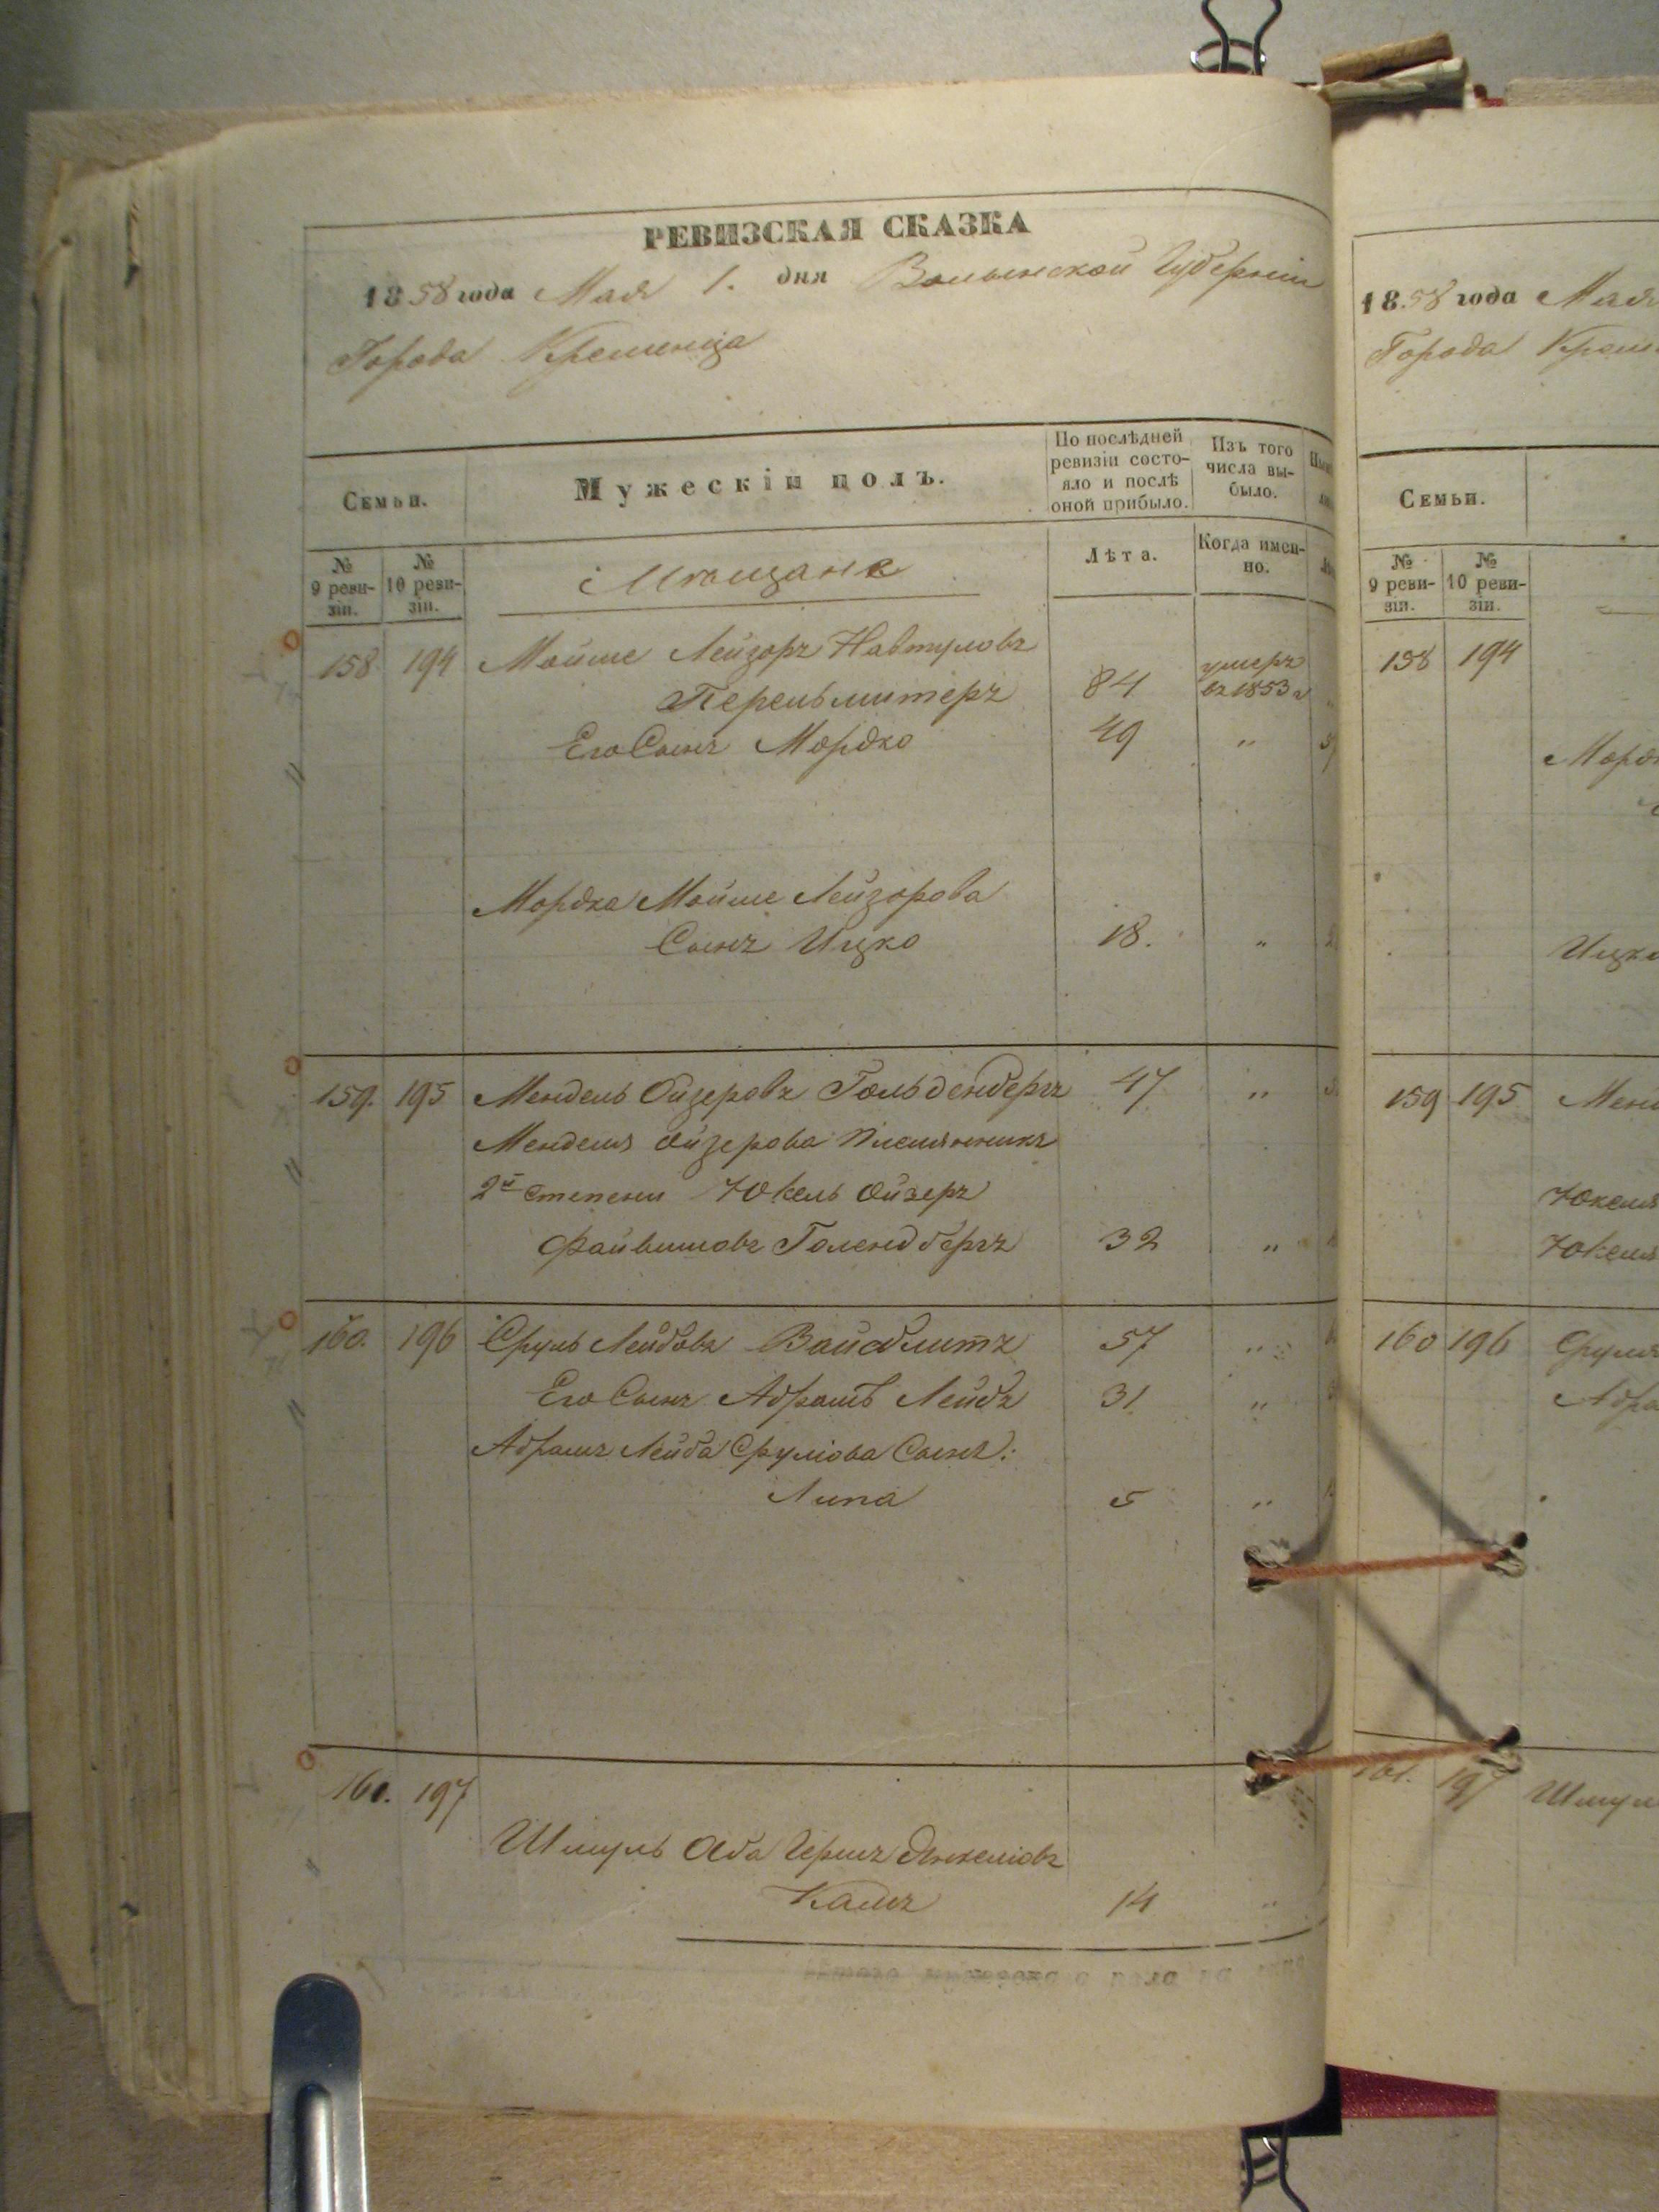 РЕВИЗСКАЯ СКАЗКА
1858 года Мая 1. дня Волынской Губерніи
Города Кременца
Семьи.
Мужескій полъ.
По послѣдней ревизіи состо-
яло и послѣ
оной прибыло.
Изъ того
числа вы-
было.
№
9 реви-
зіи.
№
10 реви-
зіи.
Мѣщане
Лѣта.
Когда имен-
но.
158 194 Мойше Лейзоръ Навтуловъ
Перельмитеръ 84 умеръ
въ 1853 г
Его Сынъ Мордко 49 "
Мордка Мойше Лейзорова
Сынъ Ицко 18. "
159. 195 Мендель Ойзеровъ Гольденбергъ 47 "
Менделя Ойзерова Племянникъ
2й Степени Юкель Ойзеръ
Файвишовъ Голендбергъ 32 "
160. 196 Сруль Лейбовъ 57 "
Его Сынъ Абрамъ Лейбъ 31 "
Абрамъ Лейба Срулiова Сынъ:
Липа 5 "
161. 197
Шмуль Аба Гершъ Янкеліовъ
14 "
1858 года Мая
Города Крем
Семьи.
№
9 реви-
зіи.
№
10 реви-
зіи.
158 194
Морд
Ицко
159 195 Менд
Юкеля
Юкеля
160 196 Сруля
Абра
161. 197 Шмул